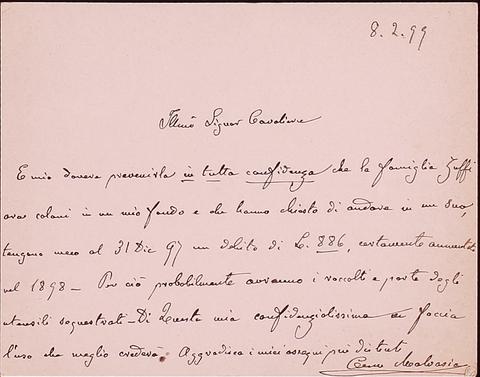 8.2.99
Illmo Signor Cavaliere
E mio dovere prevenirla in tutta confidenza che la famiglia Zuffi
ora coloni in un mio fondo e che hanno chiesto di andare in un suo,
tengono meco al 31 Dic 97 un debito di L. 886, certamente aumentato
nel 1898 - Per ciò probabilmente avranno i raccolti e parte degli
utensili sequestrati - Di questa mia confidenzialissima ne faccia
l'uso che meglio crederà. Aggradisca i miei ossequi più distinti
Malvasia